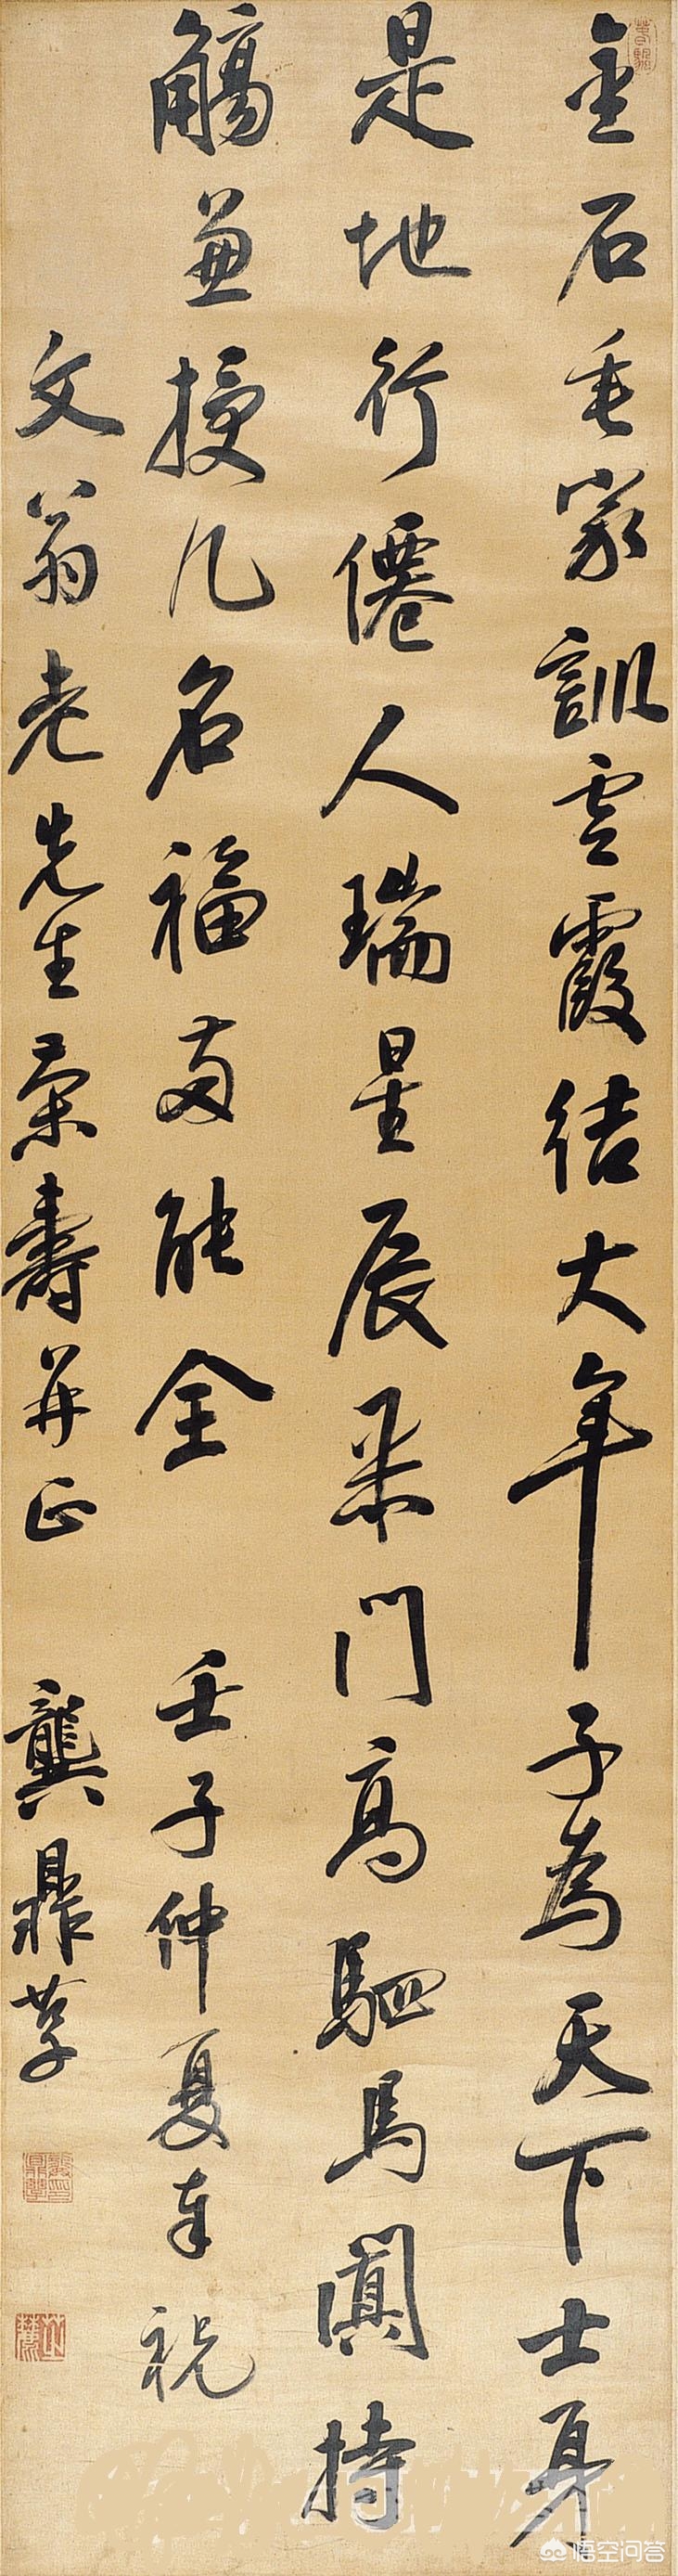 金石垂家訓雲霞結大年子為天下士身
是地行僊人瑞星辰采門高駟馬闐持
觴兼授几名福兩能全 壬子仲夏奉祝
文翁老先生榮壽并正 龔鼎孳
悟空问答